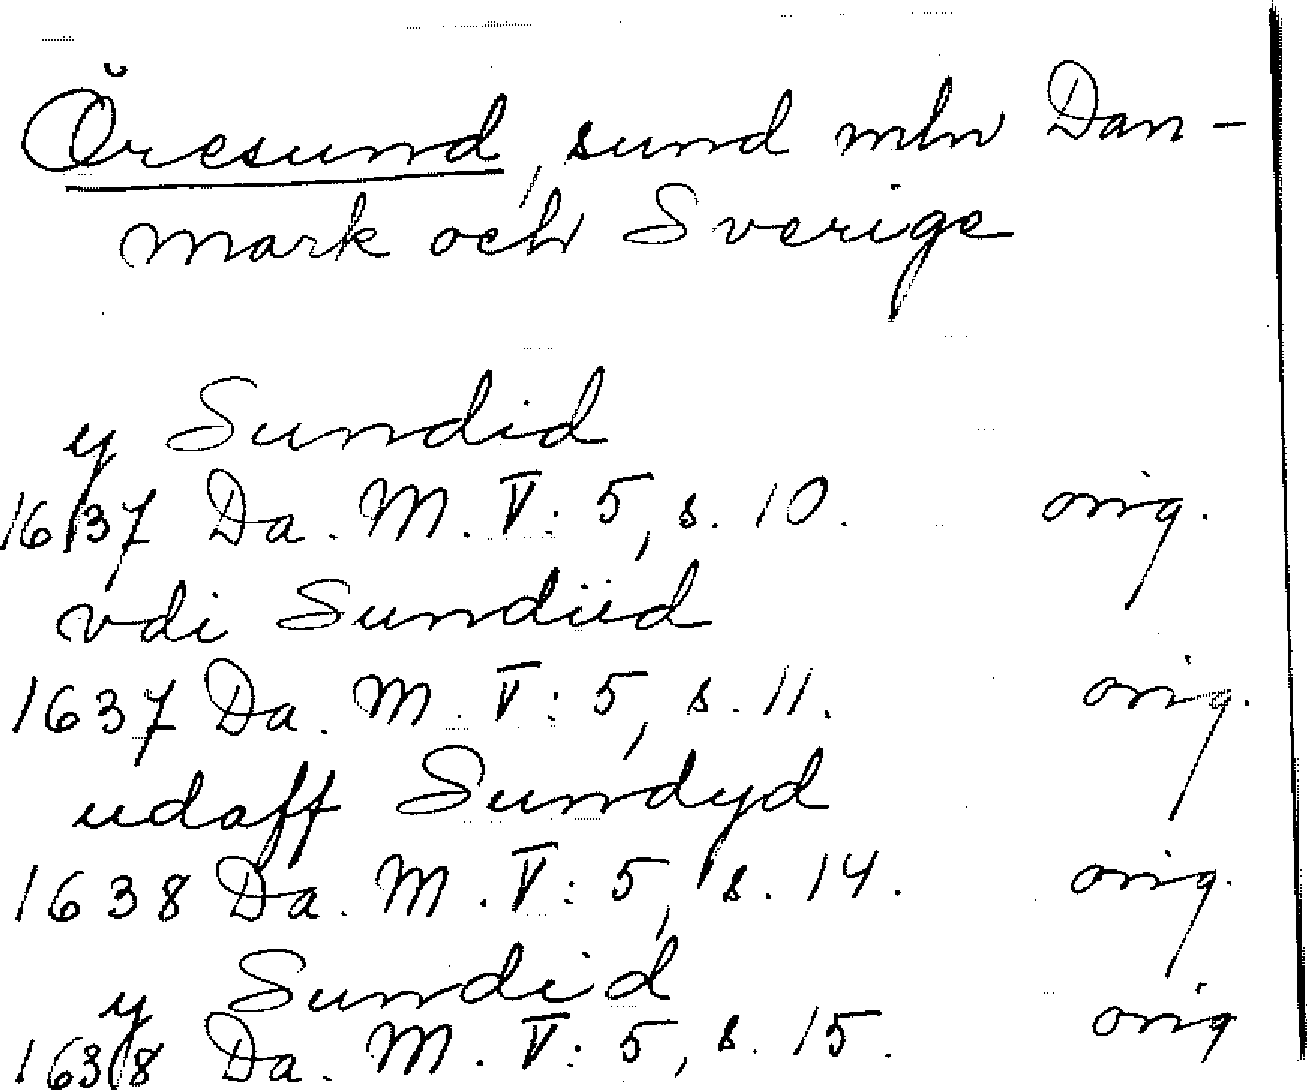 Öresund, sund mln Dan-
mark och Sverige
y Sundid
1637 Da. M. V: 5, s. 10. orig.
vdi Sundiid
1637 Da. M. V: 5, s. 11. orig.
udaff Sundyd
1638 Da. M. V: 5, s. 14. orig.
y Sundid
1638 Da. M. V: 5, s. 15. orig